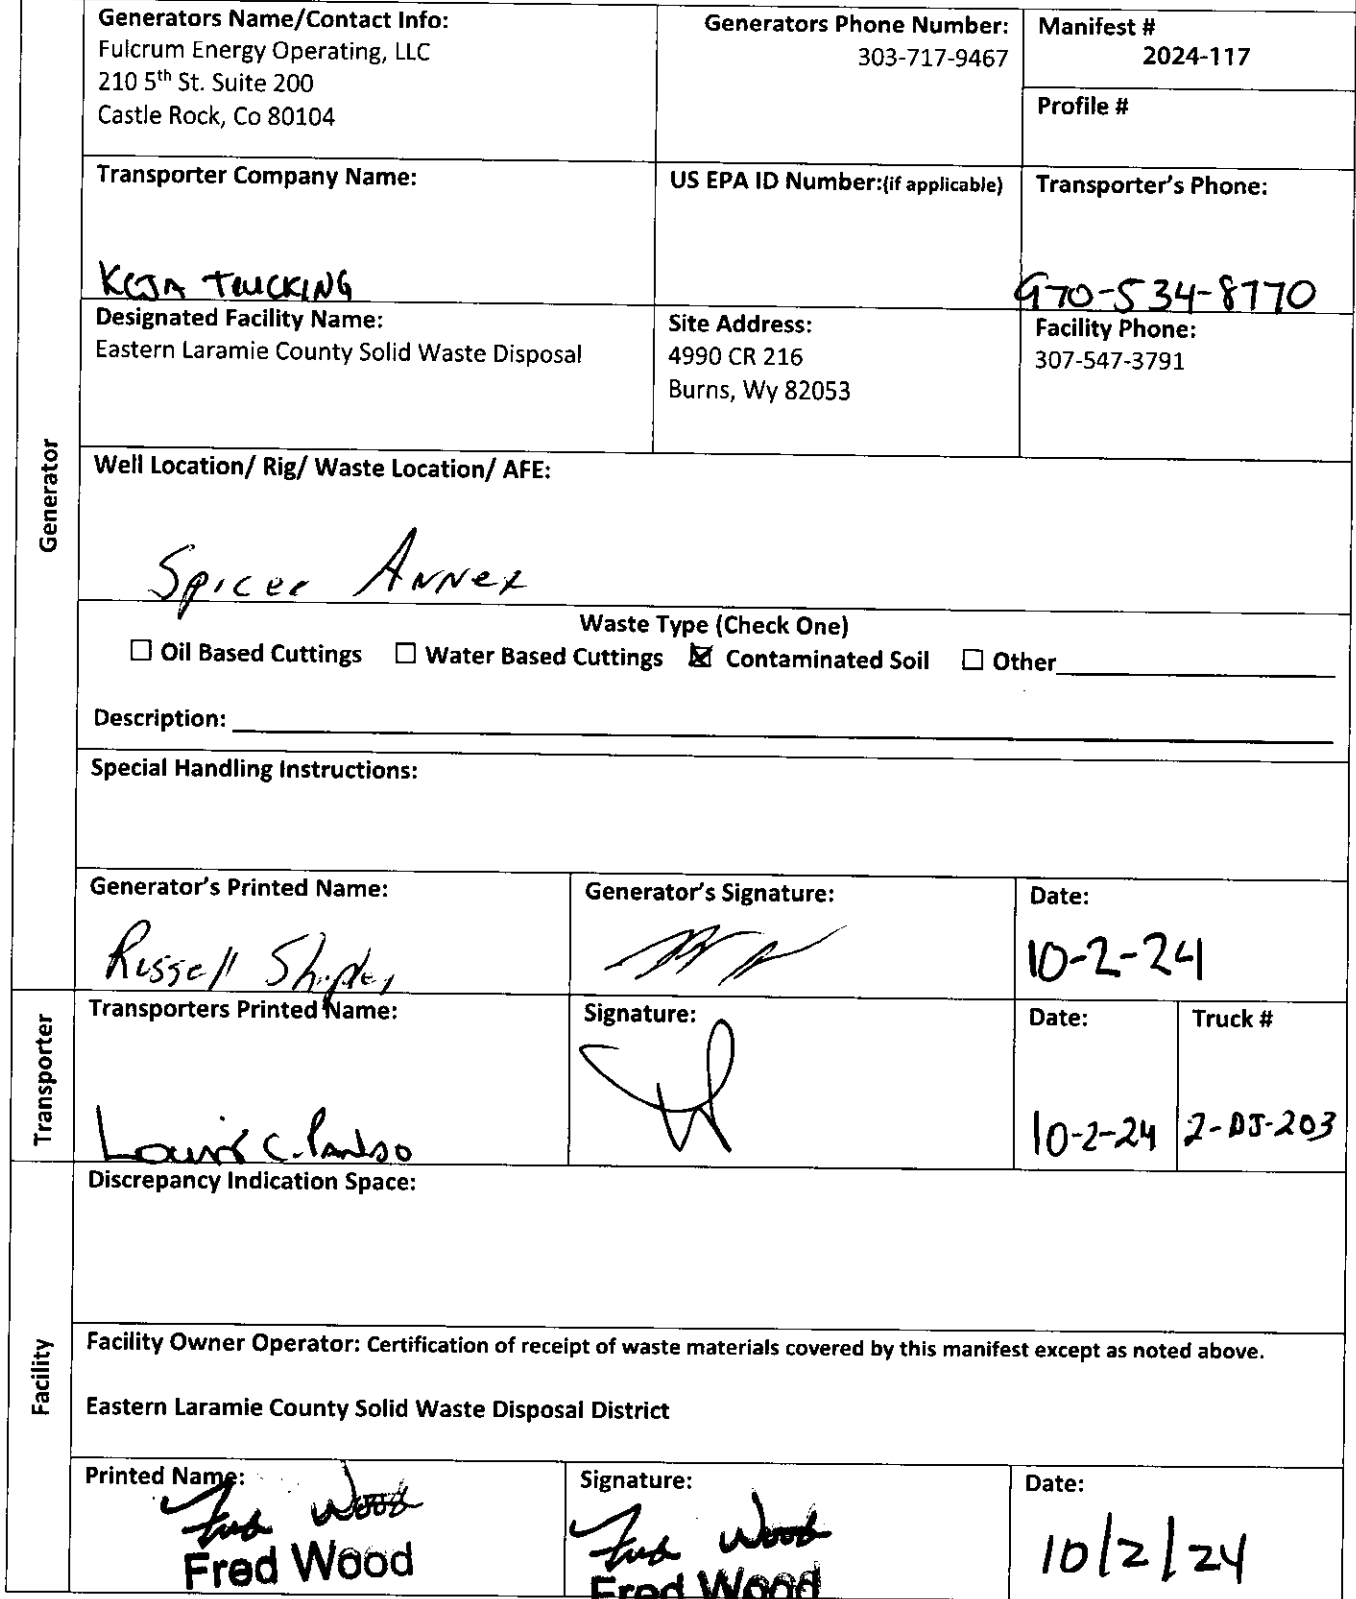 Generators Name/Contact Info:
Fulcrum Energy Operating, LLC
210 5th St. Suite 200
Castle Rock, Co 80104
Generators Phone Number:
303-717-9467
Manifest #
2024-117
Profile #
Transporter Company Name:
KCJA TRUCKING
US EPA ID Number:(if applicable)
Transporter's Phone:
970-534-8770
Designated Facility Name:
Eastern Laramie County Solid Waste Disposal
Site Address:
4990 CR 216
Burns, Wy 82053
Facility Phone:
307-547-3791
Generator
Well Location/ Rig/ Waste Location/ AFE:
Spicer Annex
Waste Type (Check One)
☐ Oil Based Cuttings ☐ Water Based Cuttings ☒ Contaminated Soil ☐ Other
Description:
Special Handling Instructions:
Generator's Printed Name:
Russell
Generator's Signature:
Date:
10-2-24
Transporter
Transporters Printed Name:
C.
Signature:
Date:
10-2-24
Truck #
2-DJ-203
Facility
Discrepancy Indication Space:
Facility Owner Operator: Certification of receipt of waste materials covered by this manifest except as noted above.
Eastern Laramie County Solid Waste Disposal District
Printed Name:
Fred Wood
Fred Wood
Signature:
Fred Wood
Fred Wood
Date:
10/2/24